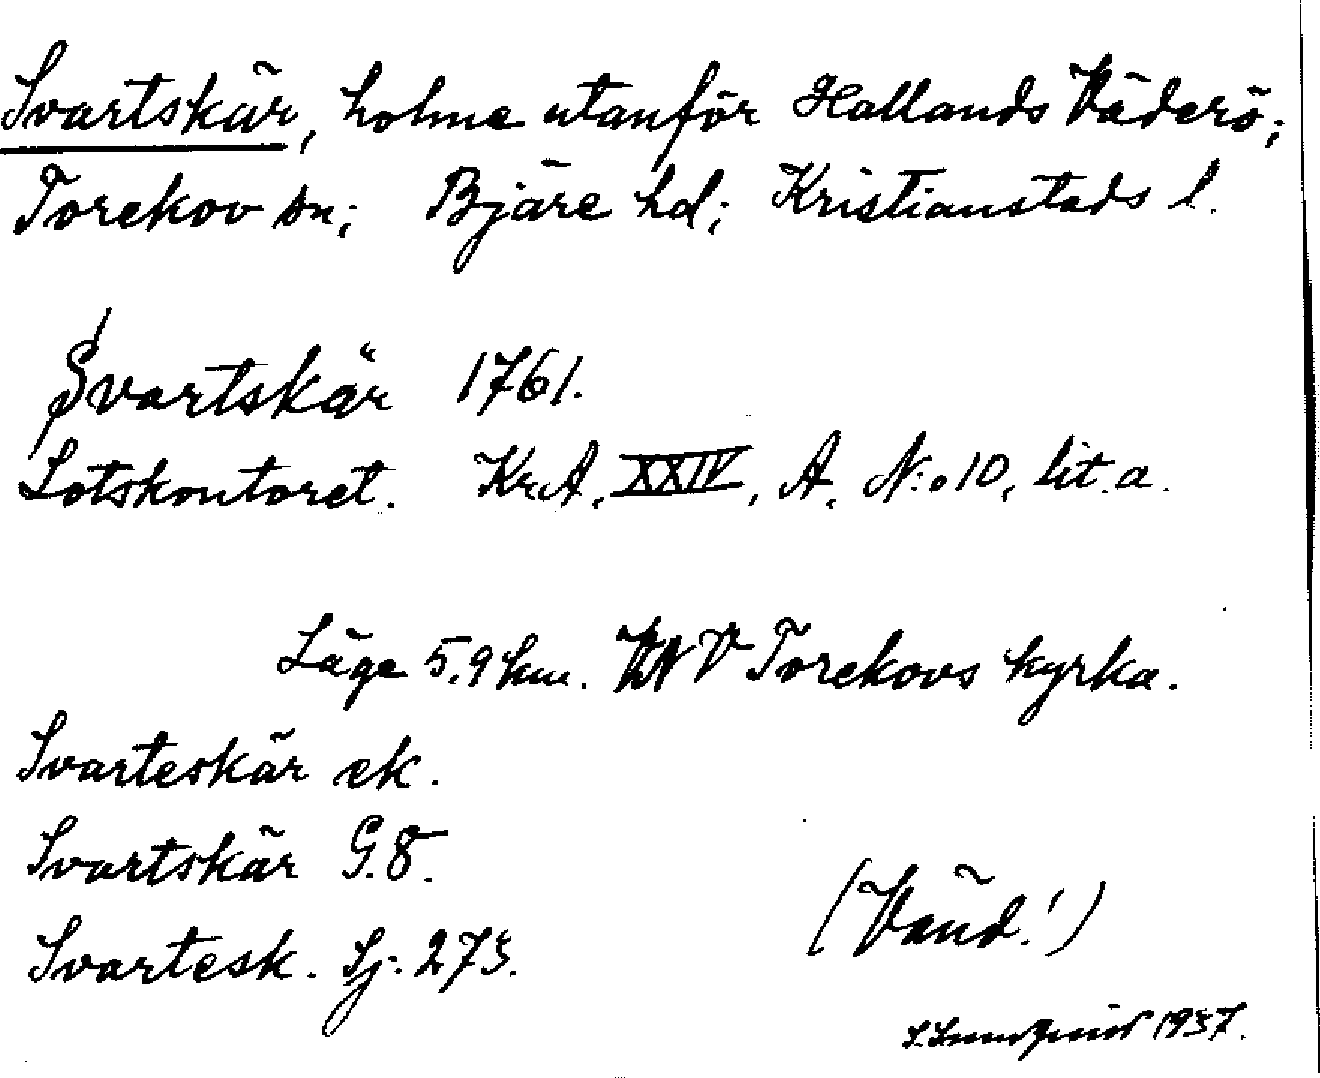 Svartskär, holme utanför Hallands Väderö;
Torekov sn; Bjäre hd; Kristianstads l.
Svartskär 1761.
Lotskontoret. Kr.A. XXIV, A. N:o 10, lit. a.
Läge 5.9 km. NV Torekovs kyrka.
Svarteskär ek.
Svartskär G.8.
Svartesk. Sj. 273.
(Vänd!)
1937.